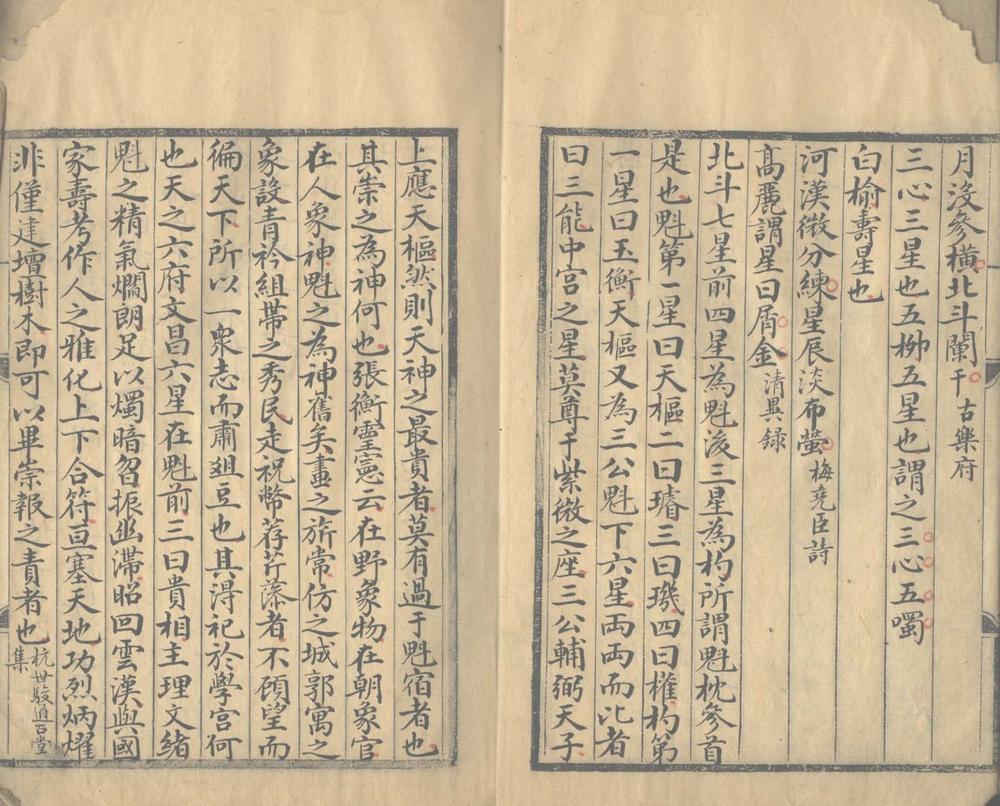 月沒參橫北斗闌干古樂府
三心三星也五桺五星也謂之三心五噣
白榆壽星也
河漢微分練星辰淡布螢梅堯臣詩
高麗謂星曰屑金清異録
北斗七星前四星為魁後三星為杓所謂魁枕參首
是也魁第一星曰天樞二曰璿三曰璣四曰權杓第
一星曰玉衡天樞又為三公魁下六星両両而比者
曰三能中宮之星莫尊于紫微之座三公輔弼天子
上應天樞然則天神之最貴者莫有過于魁宿者也
其崇之為神何也張衡靈憲云在野象物在朝象官
在人象神魁之為神舊矣畫之旂常仿之城郭寓之
象設青衿組帶之秀民走祝幣荐芹藻者不頋望而
徧天下所以一衆志而肅俎豆也其得祀於學宮何
也天之六府文昌六星在魁前三曰貴相主理文緒
魁之精氣爓朗足以燭暗曶振幽滯昭回雲漢與國
家壽考作人之雅化上下合符亘塞天地功烈炳燿
非僅建壇樹木即可以畢崇報之責者也杭世駿道古堂
集